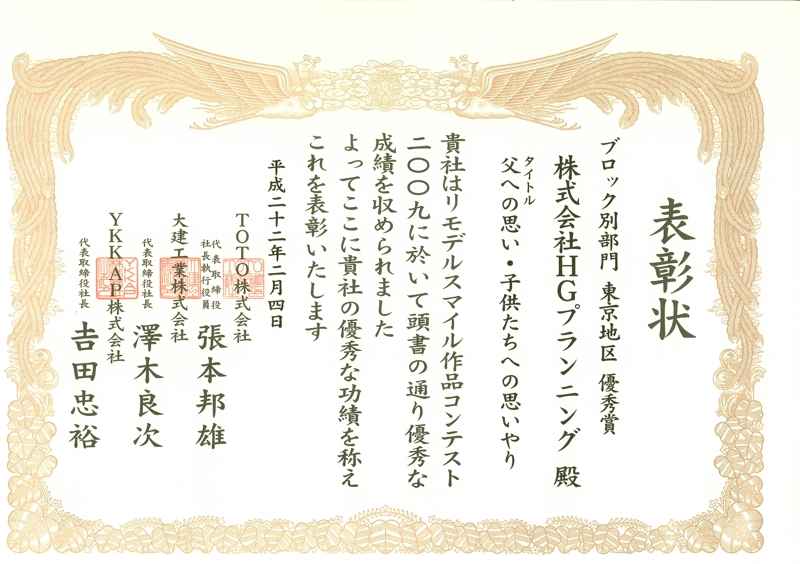 表彰状
ブロック別部門 東京地区 優秀賞
株式会社HGプランニング 殿
タイトル
父への思い・子供たちへの思いやり
貴社はリモデルスマイル作品コンテスト
二〇〇九に於いて頭書の通り優秀な
成績を収められました
よってここに貴社の優秀な功績を称え
これを表彰いたします
平成二十二年二月四日
TOTO株式会社
代表取締役
社長執行役員 張本邦雄
大建工業株式会社
代表取締役社長 澤木良次
YKK AP株式会社
代表取締役社長 𠮷田忠裕